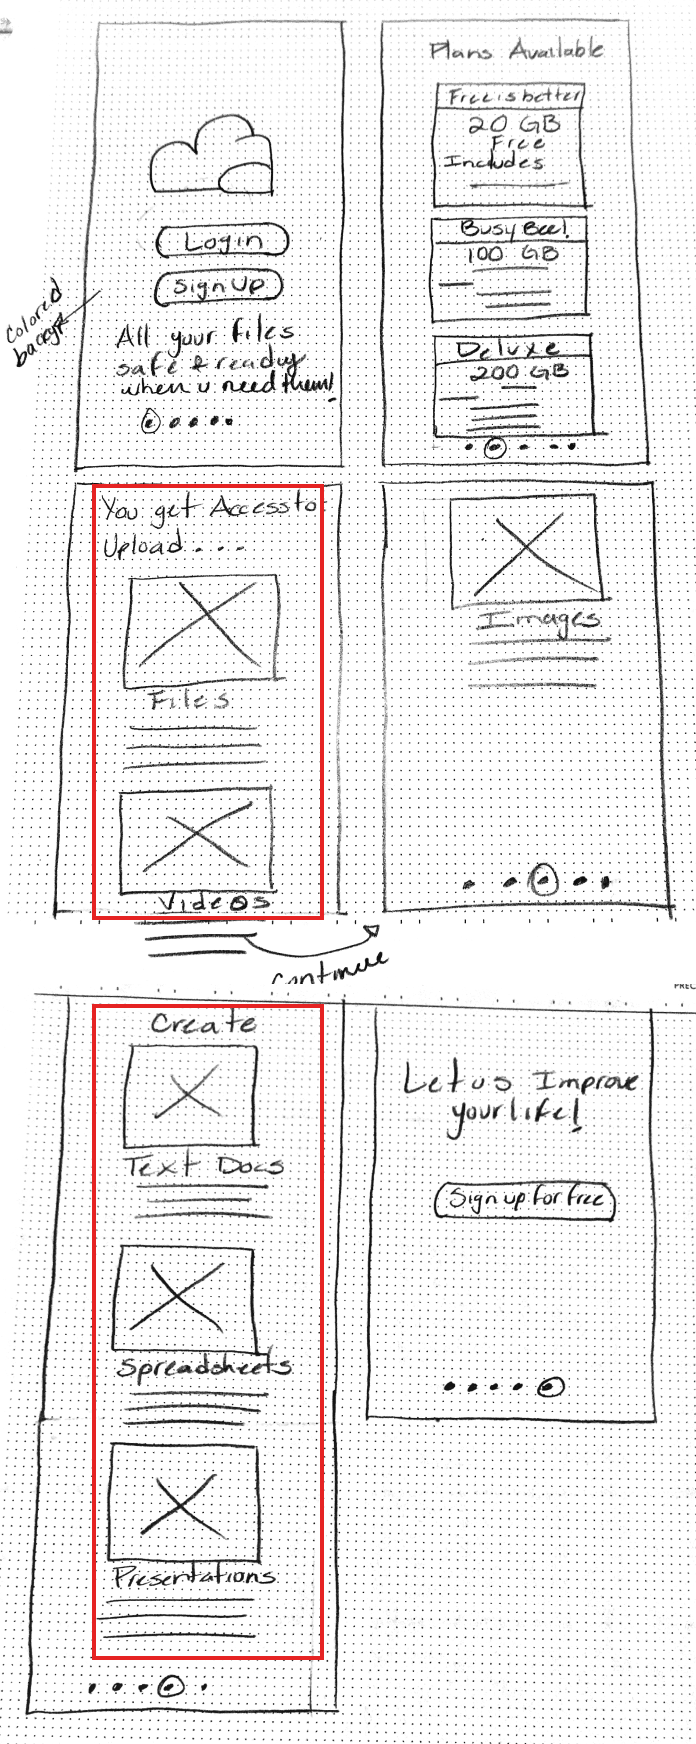 Login
Sign Up
All your files
safe & ready
when u need them!
Colored
Plans Available
Free is better
20 GB
Free
Includes
Busy Bee!
100 GB
Deluxe
200 GB
You get Access to
Upload . . .
Files
Videos
continue
Images
PREC
Create
Text Docs
Spreadsheets
Presentations
Let us Improve
your life!
Sign up for free